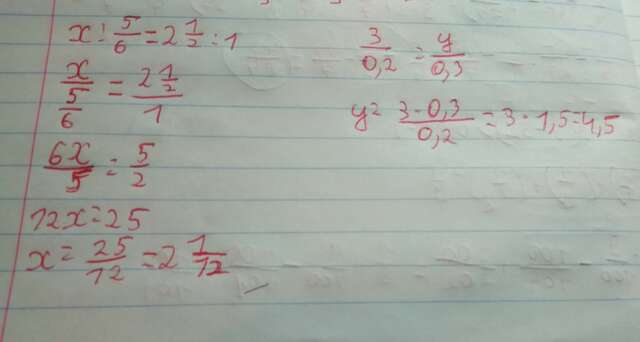 x : 5/6 = 2 1/2 : 1
x / (5/6) = 2 1/2 / 1
6x/5 = 5/2
12x = 25
x = 25/12 = 2 1/12
3/0,2 = y/0,3
y = 3 · 0,3 / 0,2 = 3 · 1,5 = 4,5